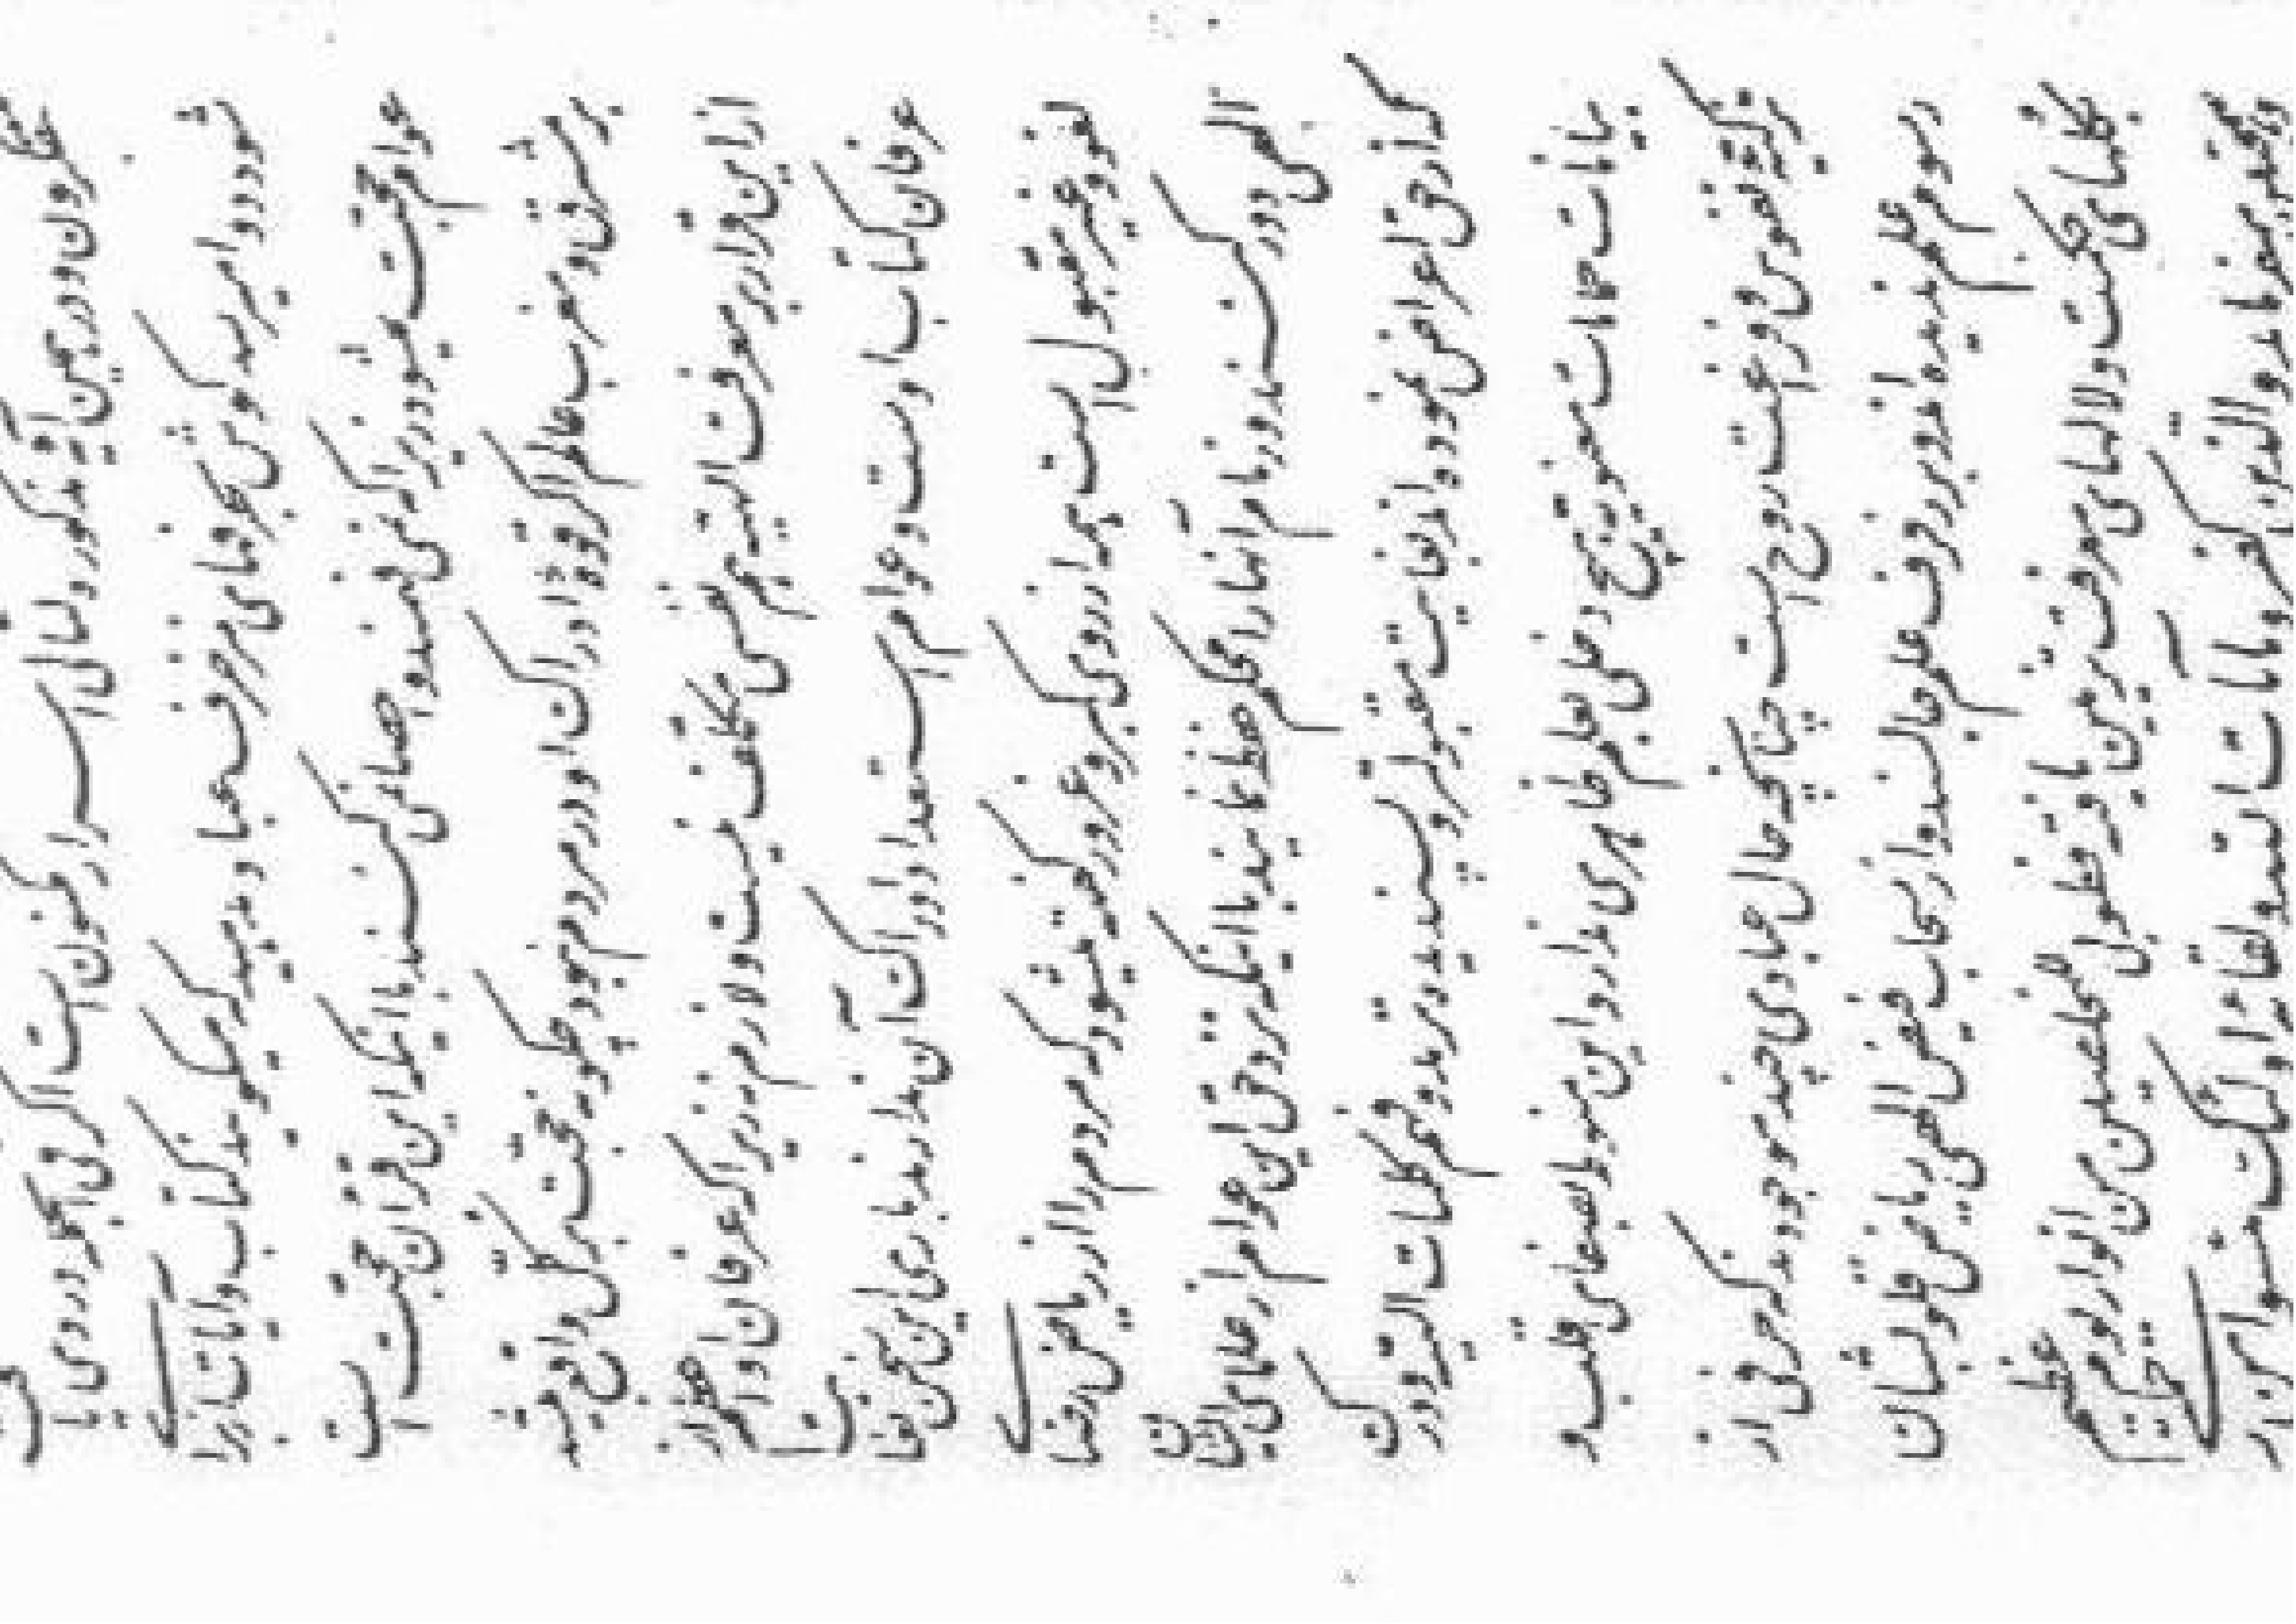 عاکفون و در همین آیه مذکور و لئالی اسرار مکنون است اگر فی الجمله دردی یافت
شود دوا میرسد گوش بحرفهای مزخرف عباد مدهید که میگویند کتاب و آیات از برای
عوام حجت نمیشود زیرا که نمی فهمند و احصا نمی کنند با اینکه این قرآن حجت است
بر مشرق و مغرب عالم اگر قوّهٔ ادراک او در مردم نبود چگونه حجت بر کل واقع میشد
از این قرار بر معرفت الهیه هم نفسی مکلف نیست و لازم نه زیرا که عرفان او اعظم از
عرفان کتاب اوست و عوام استعداد ادراک آن ندارند باری این سخن بغایت
لغو و غیر مقبول است همه از روی کبر و غرور گفته میشود که مردم را از ریاض رضای
الهی دور کنند و زمام آنها را محکم حفظ نمایند با اینکه نزد حق این عوام از علمای ایشان
که از حق اعراض نموده اند بغایت مقبول تر و پسندیده ترند و فهم کلمات الهیه و درک
بیانات حمامات معنویه هیچ دخلی بعلم ظاهری ندارد این منوط بصفای قلب و
تزکیه نفوس و فراغت روح است چنانچه حال عبادی چند موجودند که حرفی از
رسوم علم ندیده اند و بر رفرف علم جالسند و از سحاب فیض الهی ریاض قلوبشان
بگلهای حکمت و لالهای معرفت تزیین یافته فطوبی للمخلصین من انوار یوم عظیم
و همچنین میفرماید و الذین کفروا بآیات الله و لقائه اولئک یئسوا من رحمتی